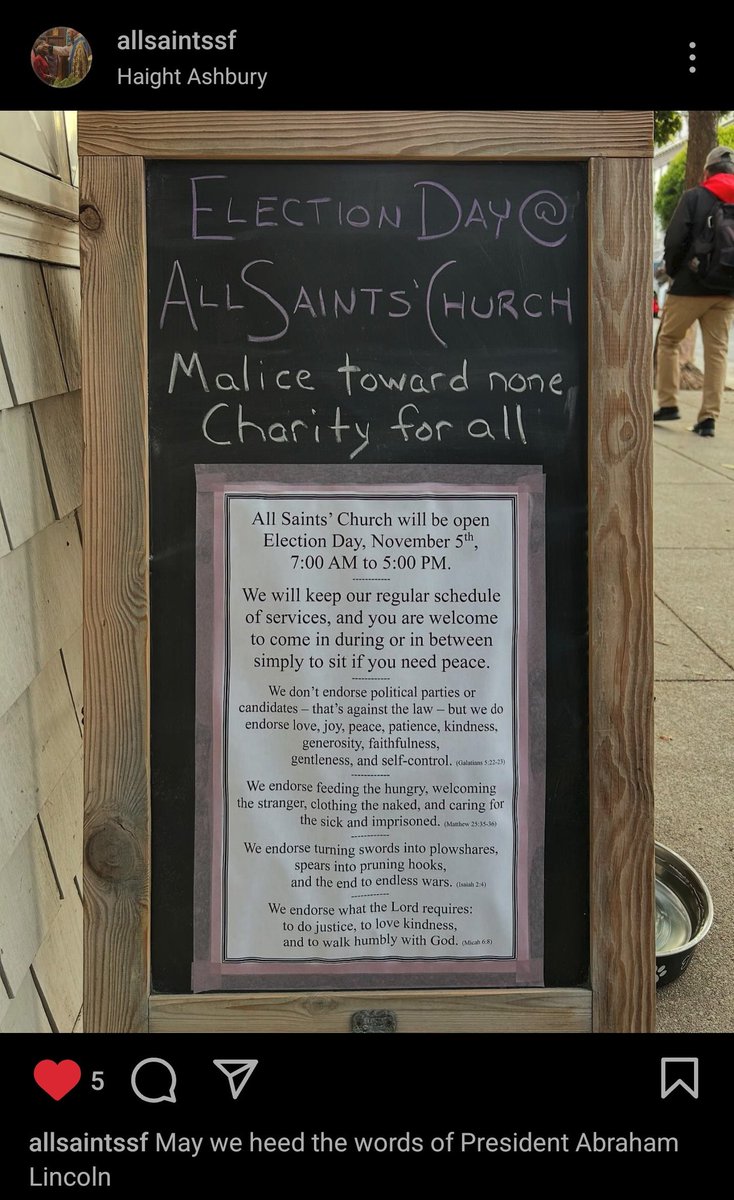 allsaintssf
Haight Ashbury
ELECTION DAY @
ALL SAINTS' CHURCH
Malice toward none
Charity for all
All Saints' Church will be open
Election Day, November 5th,
7:00 AM to 5:00 PM.
------------
We will keep our regular schedule
of services, and you are welcome
to come in during or in between
simply to sit if you need peace.
------------
We don't endorse political parties or
candidates – that's against the law – but we do
endorse love, joy, peace, patience, kindness,
generosity, faithfulness,
gentleness, and self-control. (Galatians 5:22-23)
------------
We endorse feeding the hungry, welcoming
the stranger, clothing the naked, and caring for
the sick and imprisoned. (Matthew 25:35-36)
------------
We endorse turning swords into plowshares,
spears into pruning hooks,
and the end to endless wars. (Isaiah 2:4)
------------
We endorse what the Lord requires:
to do justice, to love kindness,
and to walk humbly with God. (Micah 6:8)
5
allsaintssf May we heed the words of President Abraham
Lincoln